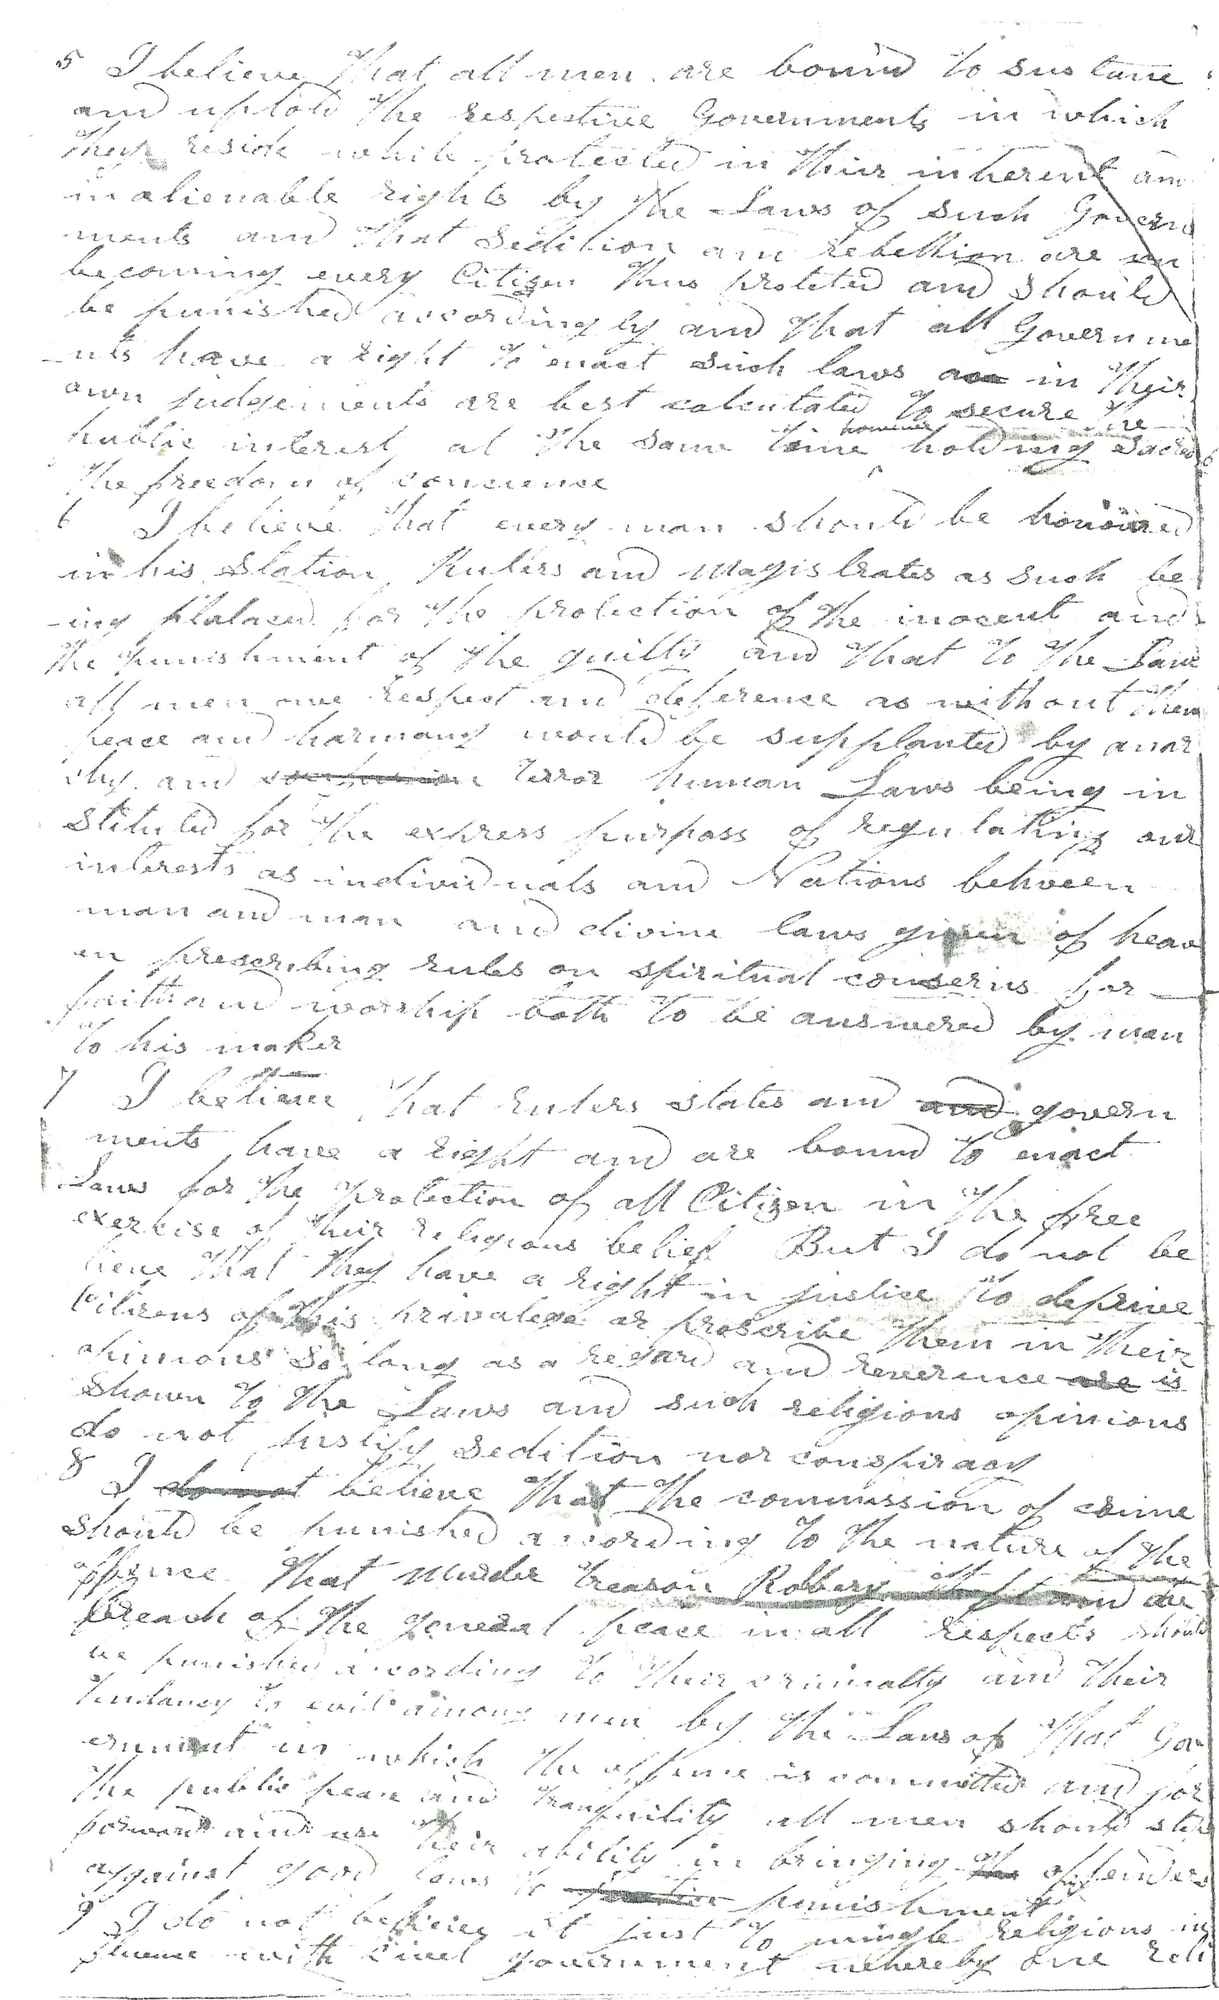 5 I believe that all men are bound to sustane
and uphold the respective Governments in which
they reside while protected in their inherent and
inalienable rights by the Laws of such Govern
ments and that Sedition and rebellion are un
becoming every Citizen thus protcted and should
be punished accordingly and that all Governme
-nts have a right to enact such laws as in their
own judgements are best calculated to secure the
public interest at the same time however holding sacred
the freedom of concience
6 I believe that every man should be honoured
in his Station, Rulers and Magistrates as such be
-ing plalaced for the protection of the inocent and
the punishment of the guilty and that to the Laws
all men owe respect and deference as without them
peace and harmony would be supplanted by anar
chy and terror human Laws being in
stituted for the express purpass of regulating our
interests as individuals and Nations between
man and man and divine laws given of heav
en prescribing rules on spiritual conserns for
faith and worship both to be answered by man
to his maker
7 I believe that rulers states and and govern
ments have a right and are bound to enact
Laws for the protection of all Citizen in the free
exercise of their religious belief But I do not be
lieve that they have a right in justice to deprive
Citizens of this privalege or proscribe them in their
opinions so long as a regard and reverence are is
shown to the Laws and such religious opinions
do not justify sedition nor conspiracy
8 I do not believe that the commission of crime
should be punished according to the nature of the
offence that murder treason Robery theft and the
breach of the general peace in all respects should
be punished according to their criminalty and their
tendancy to evil among men by the Laws of that Gov
ernment in which the offence is committed and for
the public peace and tranquility all men should step
forward and use their ability in bringing offenders
against good laws to justice punishment
9 I do not believe it just to mingle religious in
fluence with civel government whereby one reli